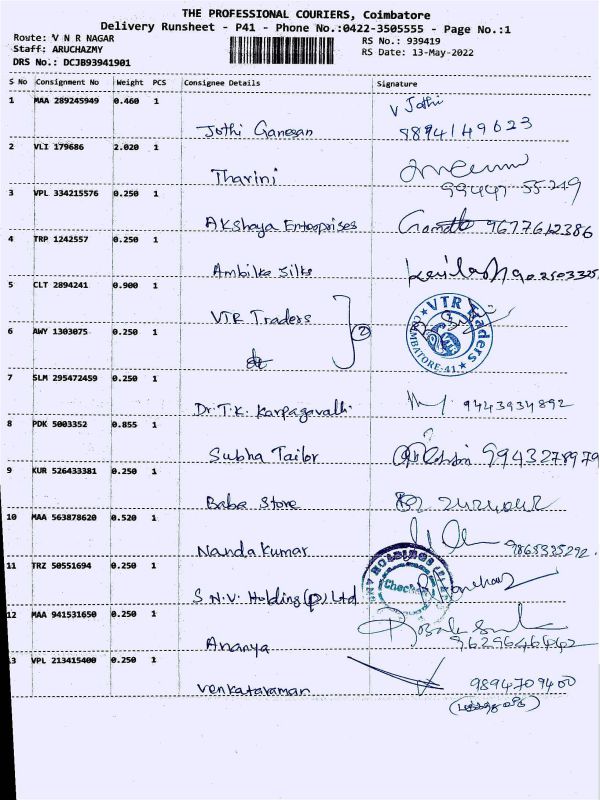 THE PROFESSIONAL COURIERS, Coimbatore
Delivery Runsheet - P41 - Phone No.:0422-3505555 - Page No.:1
Route: V N R NAGAR RS No.: 939419
Staff: ARUCHAZMY RS Date: 13-May-2022
DRS No.: DCJB93941901
S No Consignment No Weight PCS Consignee Details Signature
1 MAA 289245949 0.460 1 Jothi Ganesan V Jothi
9894149623
2 VLI 179686 2.020 1 Tharini
99447 55249
3 VPL 334215576 0.250 1 Akshaya Enterprises 9677612386
4 TRP 1242557 0.250 1 Ambika Silks
5 CLT 2894241 0.900 1 VTR Traders VTR Traders
COIMBATORE-41
6 AWY 1303075 0.250 1 do 2
7 SLM 295472459 0.250 1 Dr.T.K. Karpagavalli 9443934892
8 PDK 5003352 0.855 1 Subha Tailor 9943278979
9 KUR 526433381 0.250 1 Baba Store
10 MAA 563878620 0.520 1 Nanda Kumar 9865325292
11 TRZ 50551694 0.250 1 S.N.V. Holding (P) Ltd HOLDINGS
12 MAA 941531650 0.250 1 Ananya
9629646442
13 VPL 213415400 0.250 1 Venkataraman 9894709400